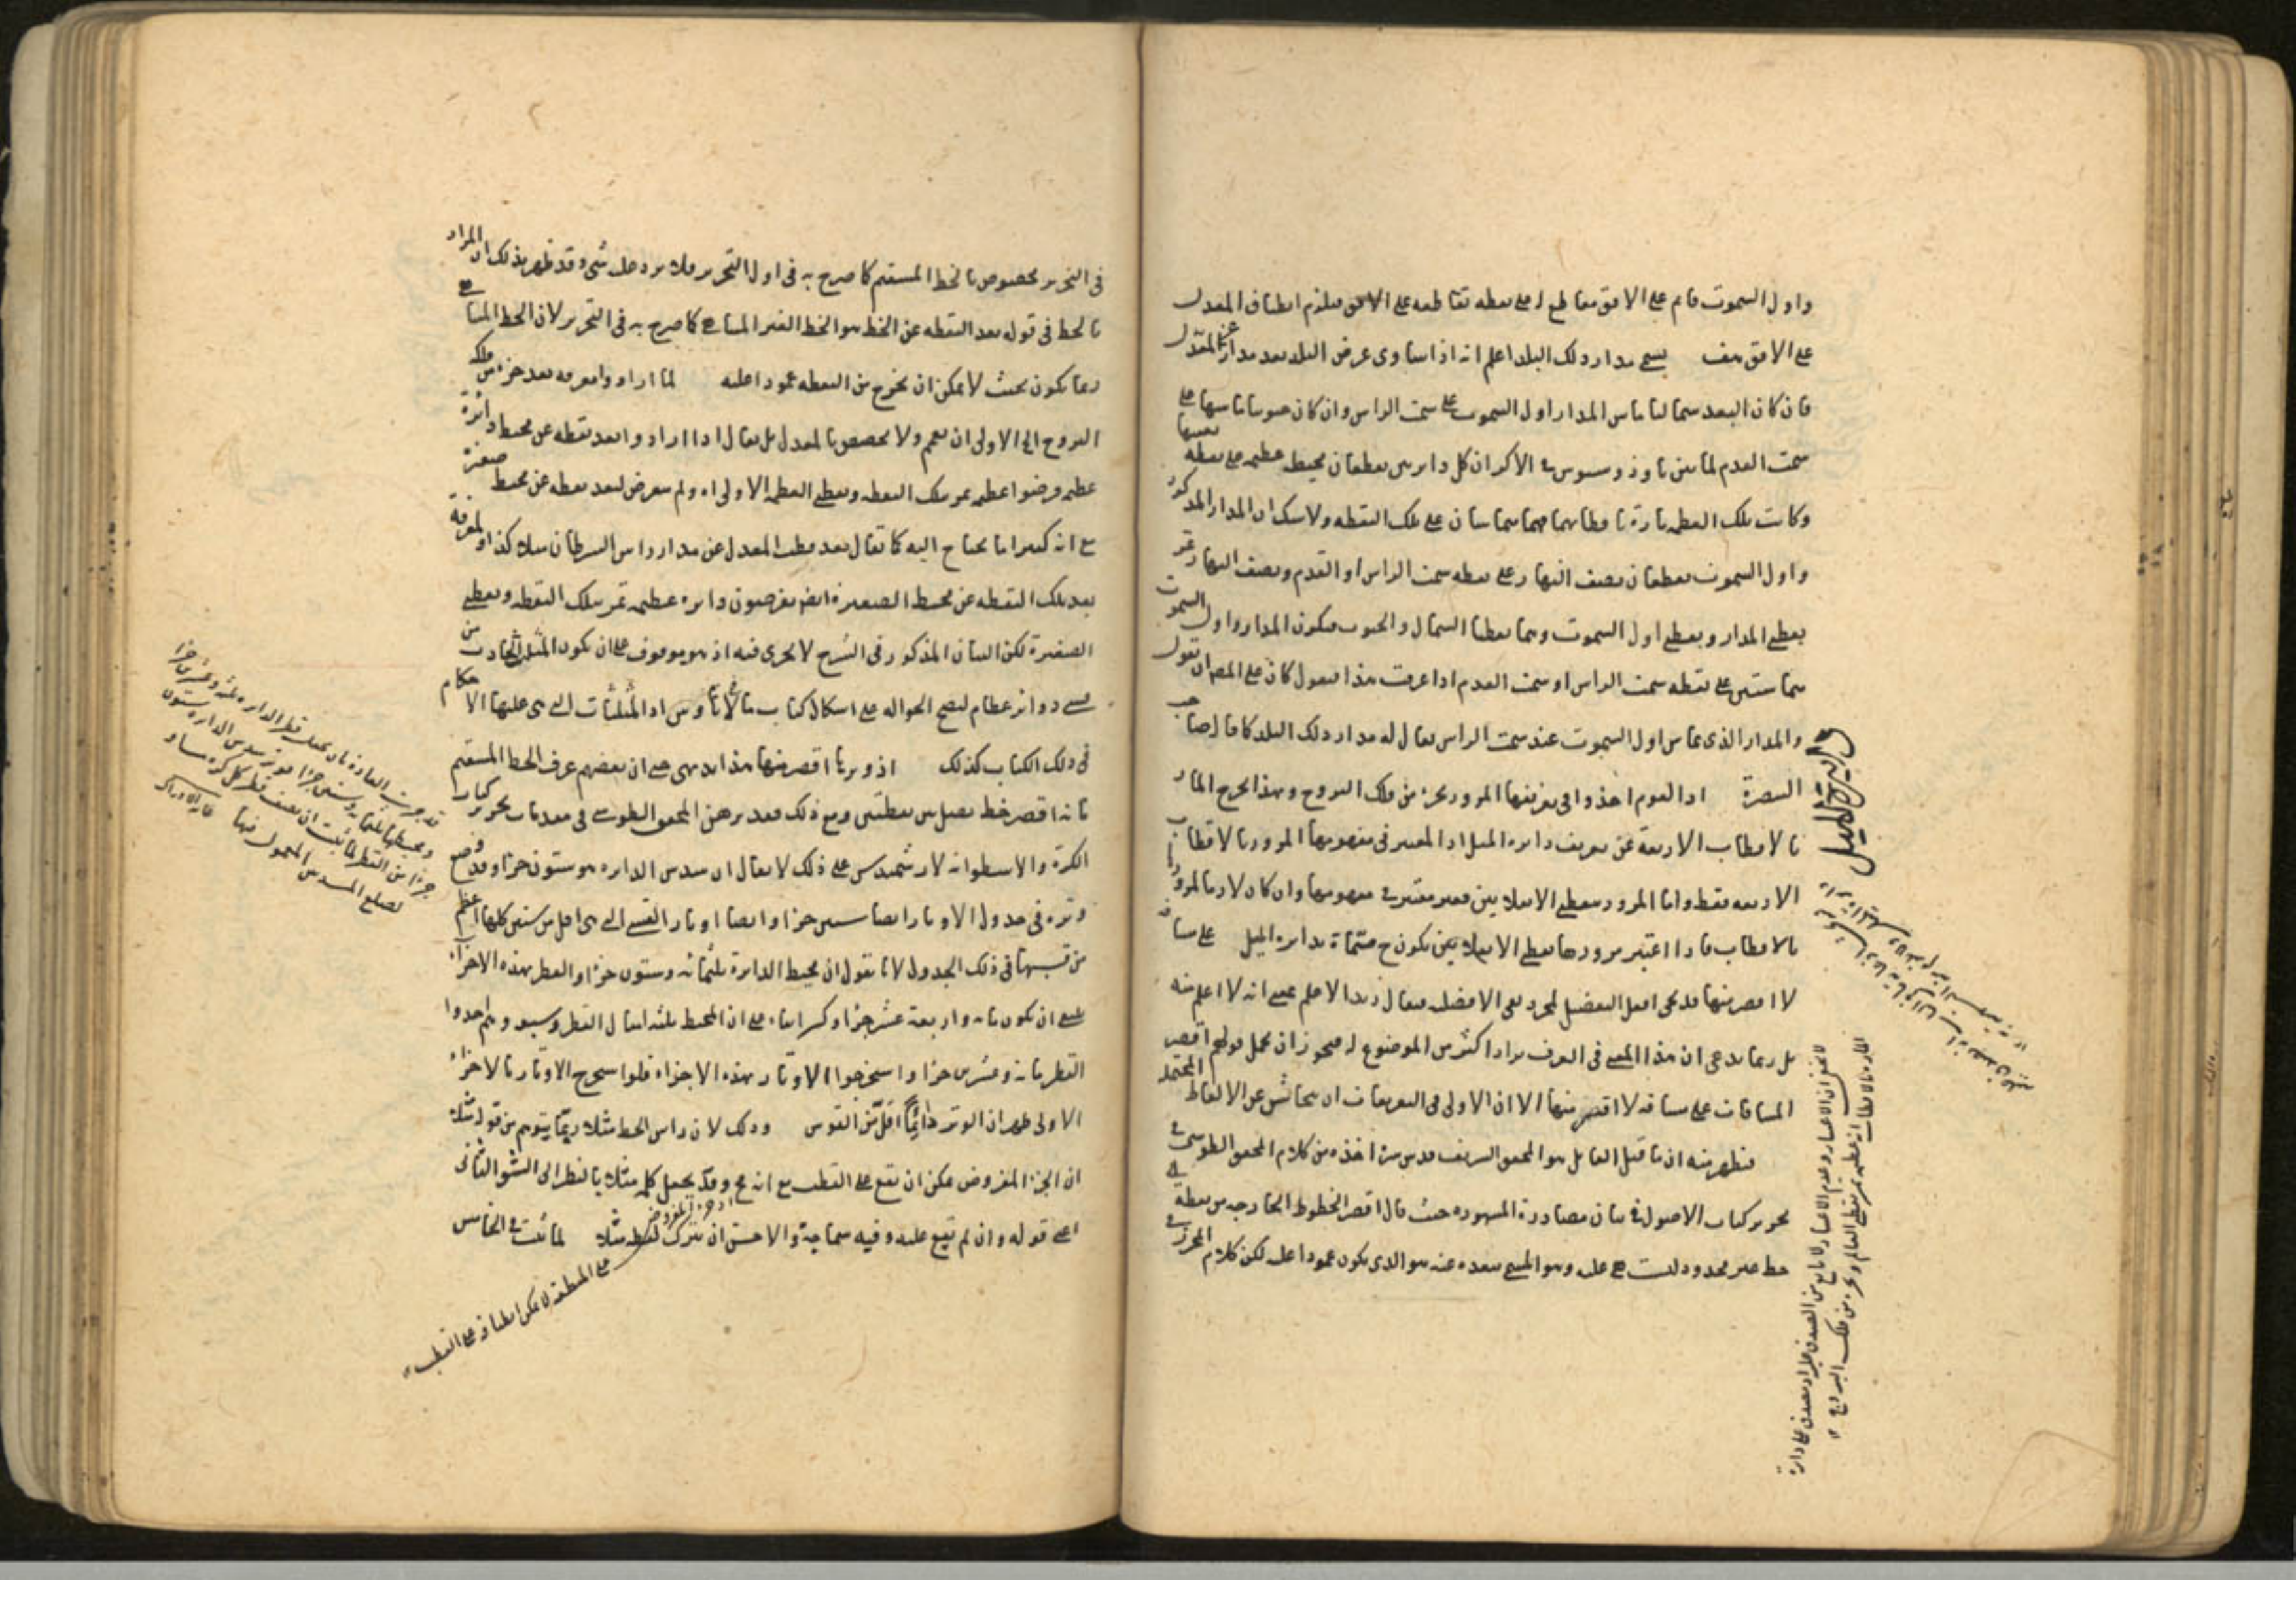 واول السموت قام على الافق مقاطع له على نقطه تقاطعه على الافق فيلزم انطباق المعدل
على الافق هف يسمى مدار ذلك البلد اعلم انه اذا ساوى عرض البلد بعد مدار عن المعدل
فان كان البعد شماليا ماس المدار اول السموت على سمت الراس وان كان جنوبيا ماسها على
سمت القدم لما بين ثاوذوسيوس في الاكر ان كل دايرتين يقطعان محيط عظيمه على نقطه بعينها
وكانت تلك العظيمه مارة باقطابهما فهما متماستان على تلك النقطه ولا شك ان المدار المذكور
واول السموت يقطعان نصف النهار على نقطه سمت الراس او القدم ونصف النهار تمر
بقطبى المدار وبقطبى اول السموت وهما نقطتا الشمال والجنوب فيكون المدار واول السموت
متماستين على نقطه سمت الراس او سمت القدم اذا عرفت هذا فنقول كان على المص ان يقول
والمدار الذى يماس اول السموت عند سمت الراس يقال له مدار ذلك البلد كما قال صاحب
التبصرة اذ القوم اخذوا فى تعريفها المرور بجزء من فلك البروج وبهذا يخرج المار
بالاقطاب الاربعة عن تعريف دايره الميل اذ المعتبر فى مفهومها المرور بالاقطاب
الاربعه فقط واما المرور بنقطتى الانقلابين فغير معتبر فى مفهومها وان كان لازما للمرور
بالاقطاب فاذا اعتبر مرورها بنقطتى الانقلابين يكون ح مسماة بدايره الميل على مسافه
لا اقصر منها قد يجى افعل التفضيل لمجرد نفى الافضل فيقال زيد الاعلم بمعنى انه لا اعلم منه
بل ربما يدعى ان هذا المعنى فى العرف يراد اكثر من الموضوع له فيجوز ان يحمل قولهم اقصر
المسافات على مسافه لا اقصر منها الا ان الاولى فى التعريفات ان يتحاشى عن الالفاظ المحتمله
فظهر منه ان ما قيل القايل هو المحقق الشريف قدس سره اخذه من كلام المحقق الطوسى فى
تحرير كتاب الاصول فى بيان مصادرة المشهوره حيث قال اقصر الخطوط الخارجه من نقطة الى
خط غير محدود ليست هى عليه وهو المسمى ببعده عنه هو الذى يكون عمودا عليه لكن كلام المحرر فى
دايرة الميل
فى التحرير مخصوص بالخط المستقيم كما صرح به فى اول التحرير فلا يرد عليه شى وقد ظهر بذلك ان المراد
بالخط فى قوله بعد النقطه عن الخط هو الخط الغير المتناهى كما صرح به فى التحرير لان الخط المتناهى
ربما يكون بحيث لا يمكن ان يخرج من النقطه عمودا عليه لما ارادوا معرفه بعد جزء من فلك
البروج الخ الاولى ان يعمم ولا يخصص بالمعدل بل يقال اذا ارادوا بعد نقطه عن محيط دائرة
عظيمه فرضوا عظيمه تمر بتلك النقطه وبقطبى العظيمه الاولى اه ولم يتعرض لبعد نقطه عن محيط صغيرة
مع انه كثيرا ما يحتاج اليه كما يقال بعد قطب المعدل عن مدار راس السرطان مثلا كذا او لمعرفة
بعد تلك النقطه عن محيط الصغيرة ايضا يفرضون دايره عظيمه تمر بتلك النقطه وبقطبى
الصغيرة لكن البيان المذكور فى الشرح لا يجرى فيه اذ هو موقوف على ان يكون المثلث الحادث من
قسى دوائر عظام ليصح الحواله على اشكال كتاب مانالاوس اذ المثلثات التى هى عليها الاحكام
فى ذلك الكتاب كذلك اذ وترها اقصر منها هذا بديهى حتى ان بعضهم عرف الخط المستقيم
بانه اقصر خط يصل بين نقطتين ومع ذلك فقد برهن المحقق الطوسى فى مقدمات تحرير كتاب
الكرة والاسطوانه لارشميدس على ذلك لا يقال ان سدس الدايره هو ستون جزءا وقد وضع
وتره فى جدول الاوتار ايضا ستين جزءا وايضا اوتار القسى التى هى اقل من ستين كلها اعظم
من قسيها فى ذلك الجدول لانا نقول ان محيط الدايرة ثلثمائه وستون جزءا والقطر بهذه الاجزاء
ينبغى ان يكون مائه واربعة عشر جزءا وكسرا بناء على ان المحيط ثلثه امثال القطر وسبع وهم اخذوا
القطر مائه وعشرين جزءا واستخرجوا الاوتار بهذه الاجزاء فلو استخرج الاوتار بالاجزاء
الاولى ظهر ان الوتر دائما اقل من القوس وذلك لان راس الخط مثلا ربما يتوهم من قوله مثلا
ان الجزء المفروض يمكن ان يقع على القطب مع انه مح وقد يجعل كلمه مثلا بالنظر الى الشق الثانى
اعنى قوله وان لم تقع عليه وفيه سماجة والاحسن ان يترك لفظه مثلا لما ثبت فى الخامس
اذ جزء المفروض على المنطقه لا يمكن انطباقه على القطب